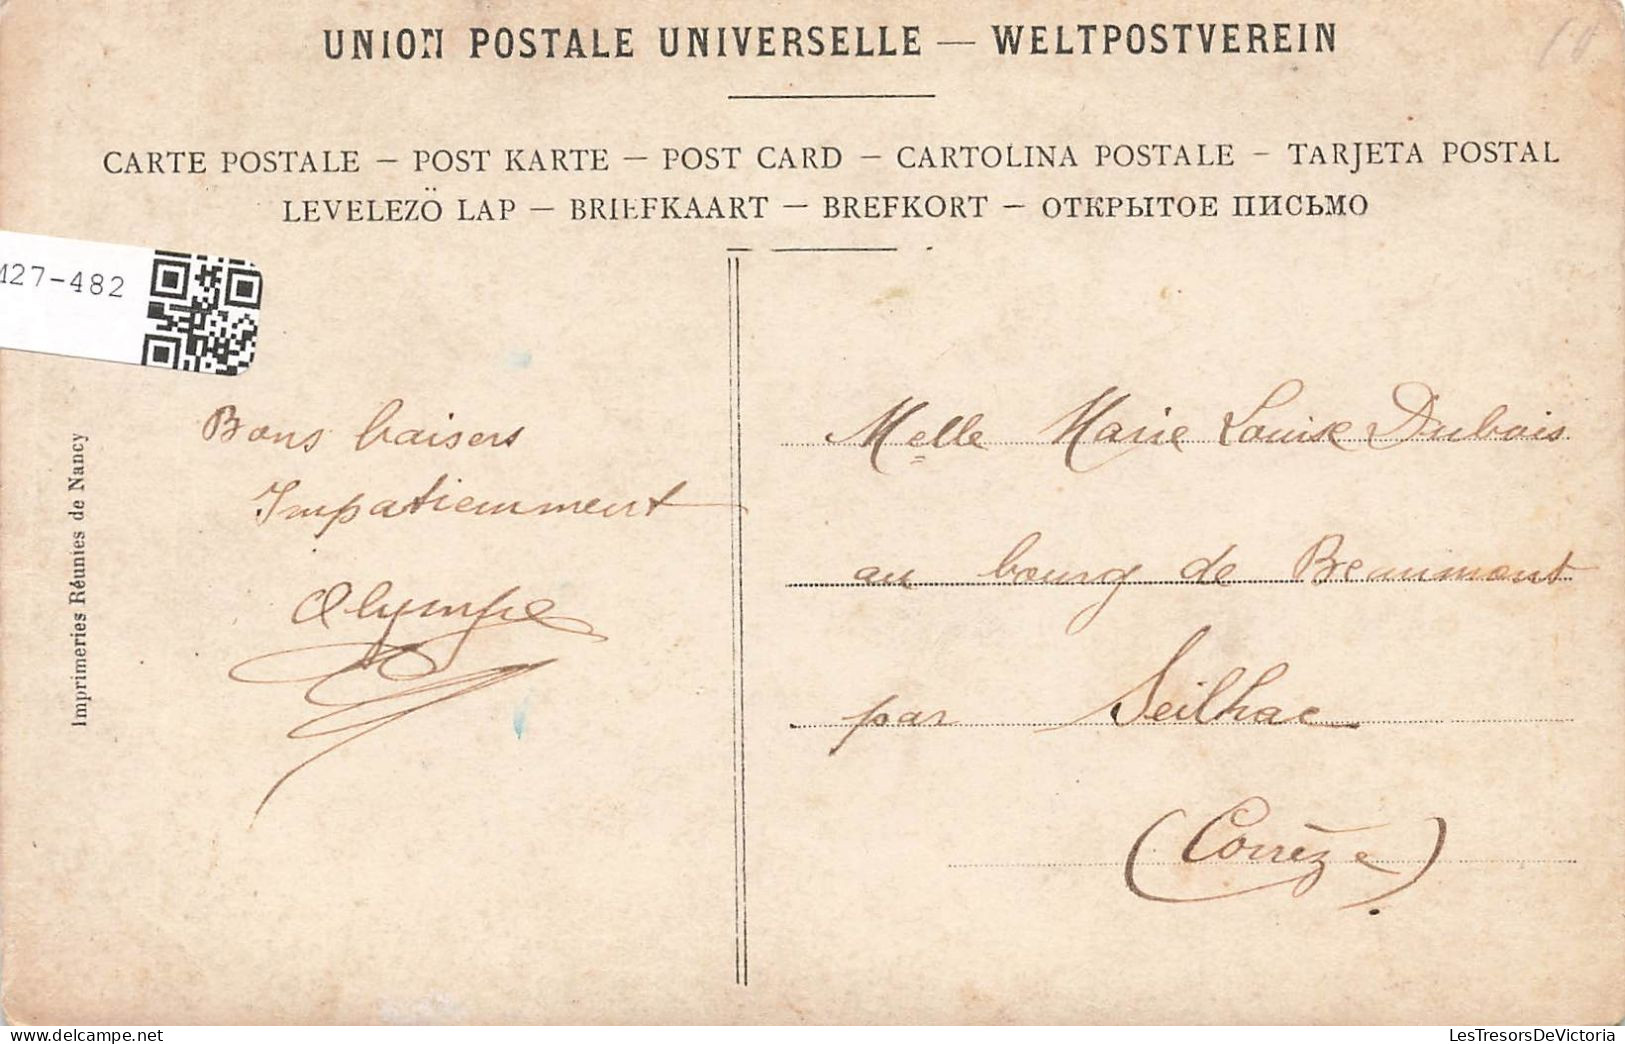 UNION POSTALE UNIVERSELLE — WELTPOSTVEREIN
CARTE POSTALE — POST KARTE — POST CARD — CARTOLINA POSTALE — TARJETA POSTAL
LEVELEZÖ LAP — BRIEFKAART — BREFKORT — ОТКРЫТОЕ ПИСЬМО
M27-482
Imprimeries Réunies de Nancy
Bons baisers
Impatiemment
Olympe
Melle Marie Louise Dubois
au bourg de Beaumont
par Seilhac
(Corrèze)
LesTresorsDeVictoria